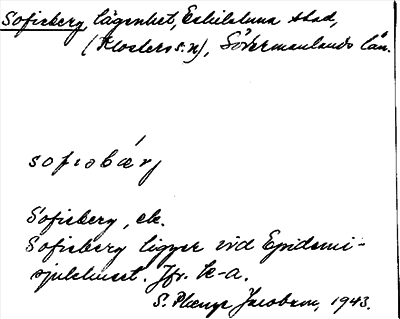 Sofieberg lägenhet, Eskilstuna stad,
(Klosters s:n), Södermanlands län.
sofiəbærj
Sofieberg, ek.
Sofieberg ligger vid Epidemi-
sjukhuset. Jfr. k-a.
S. Jacobson, 1943.